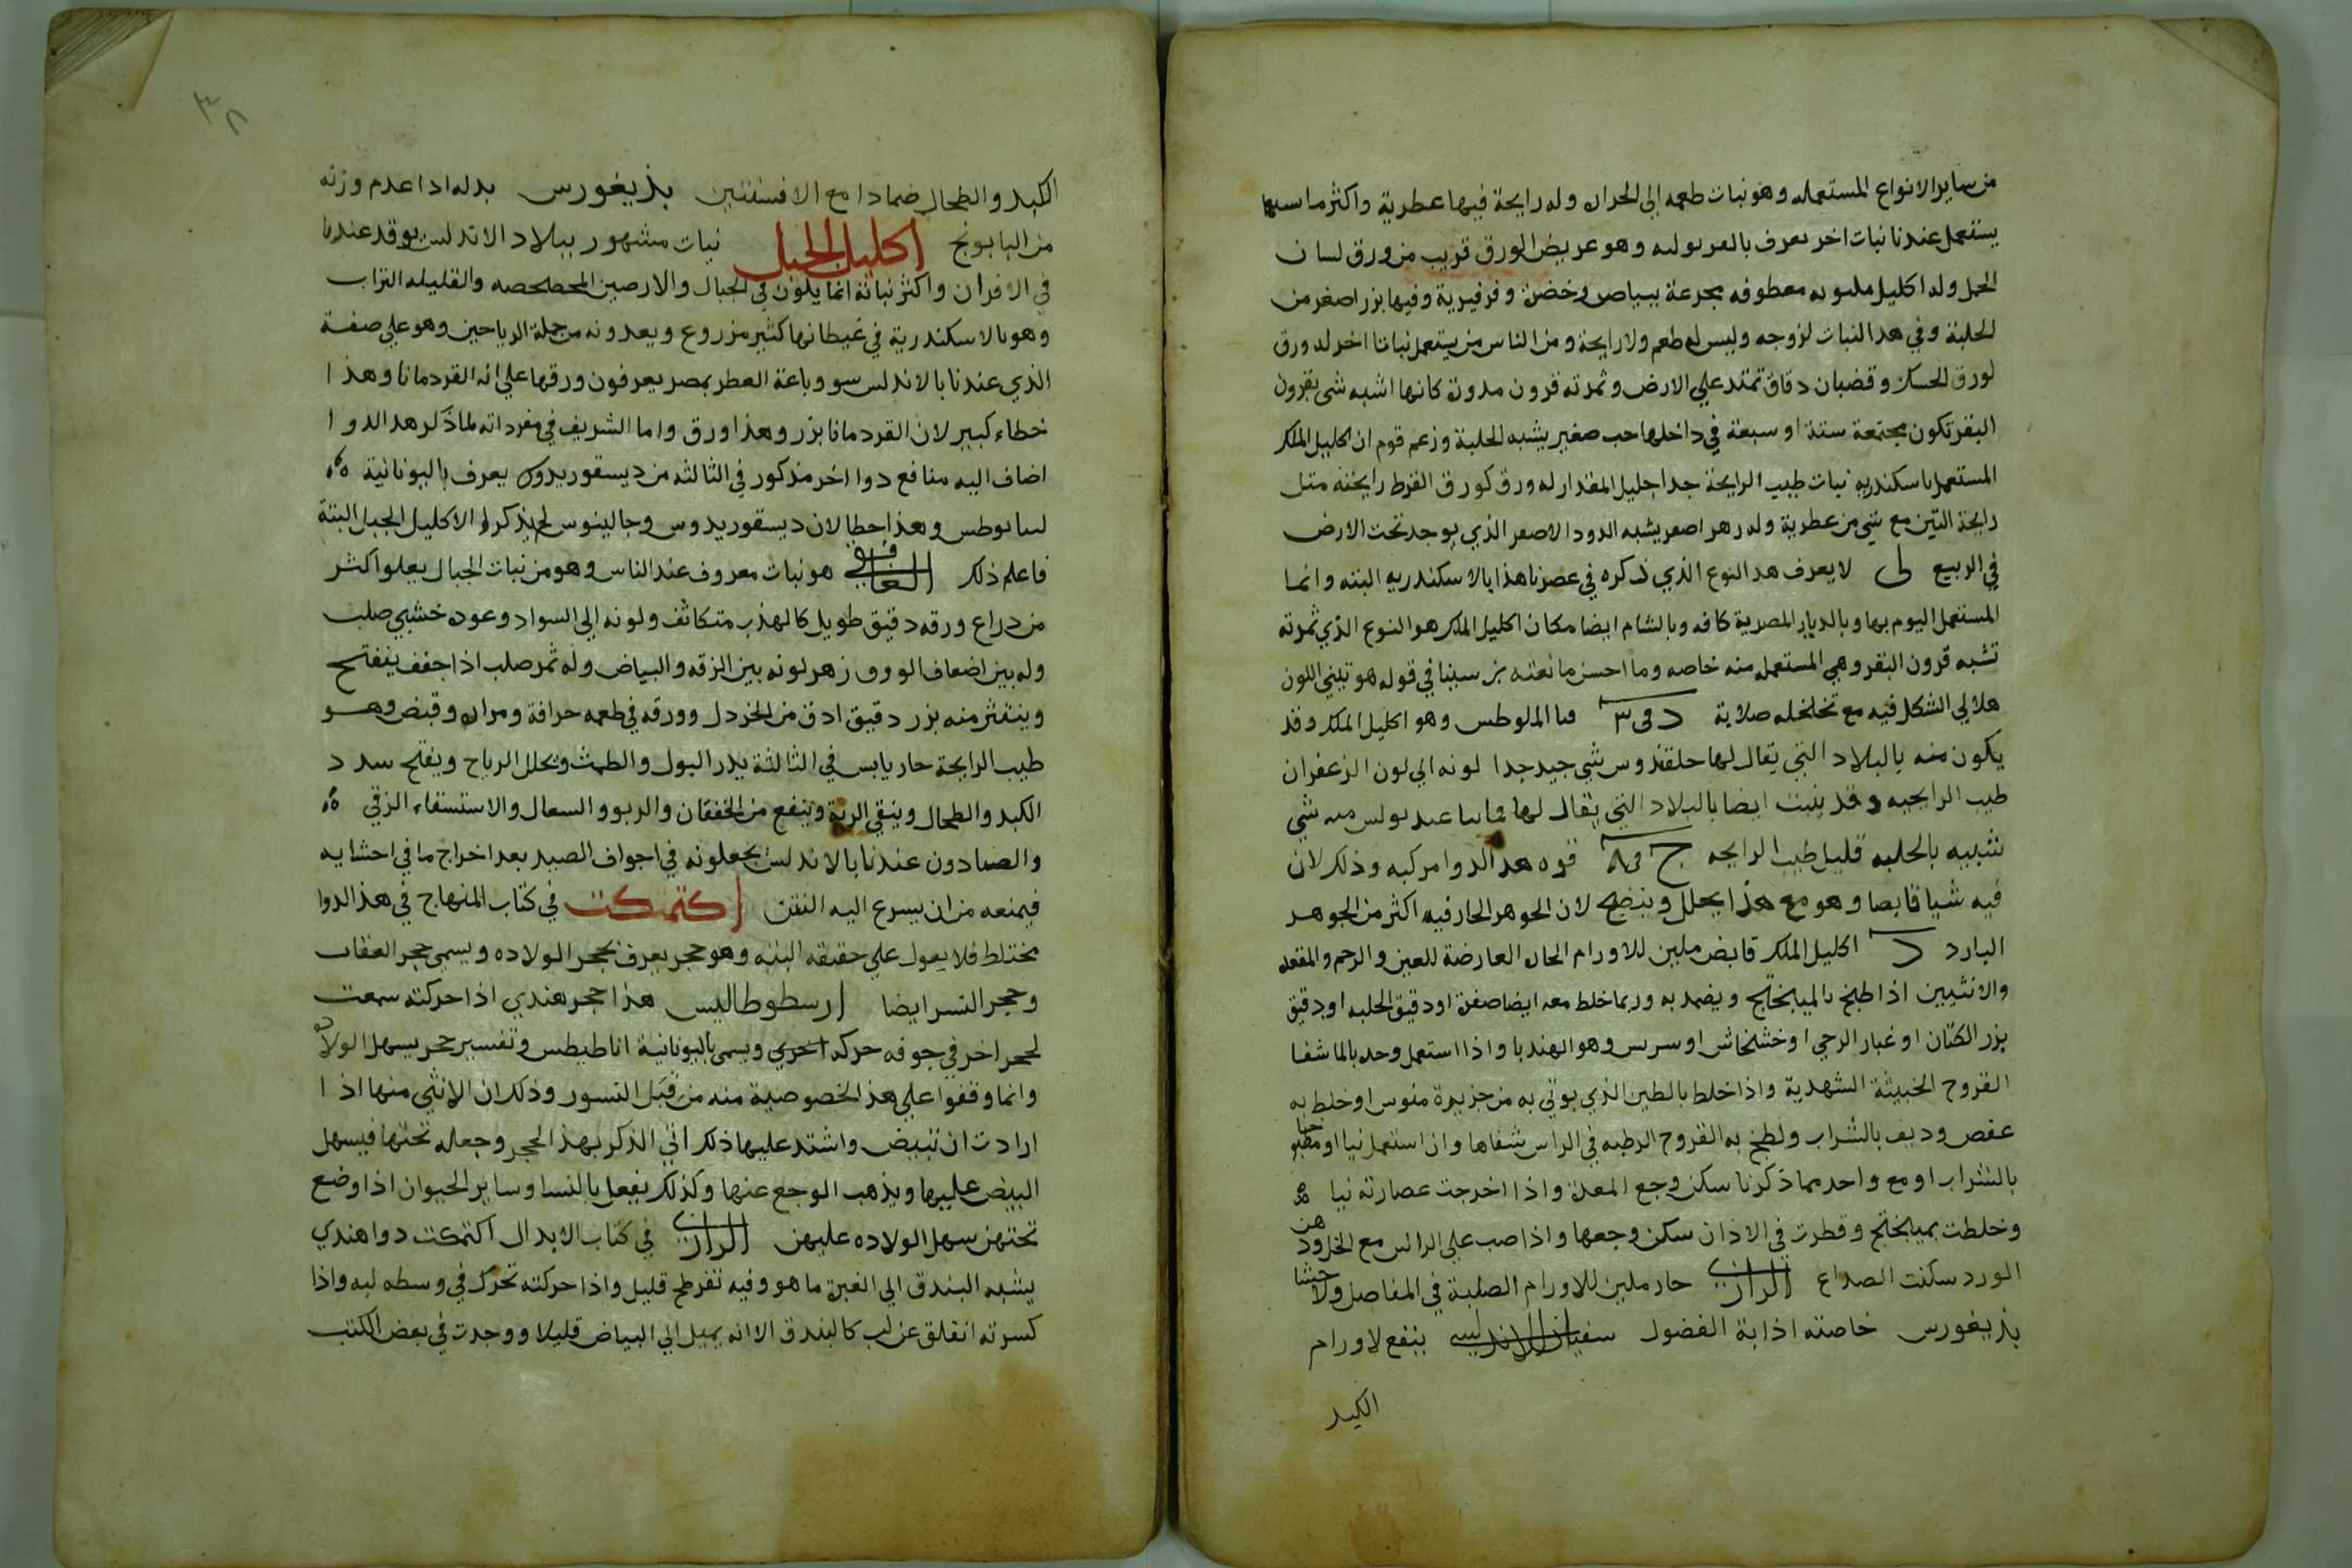 من ساير الانواع المستعمله وهو نبات طعمه الى الحراره وله رايحة فيها عطرية واكثر ما
يستعمل عندنا نبات اخر يعرف وهو عريض الورق قريب من ورق لسان
الحمل وله اكليل معطوفه مجزعة ببياض وخضرة وفرفيرية وفيها بزر اصغر من
الحلبة وفي هدا النبات لزوجه وليس له طعم ولا رايحة ومن الناس من يستعمل نباتا اخر له ورق
كورق الحسك وقضبان دقاق تمتد علي الارض وثمرته قرون مدورة كانها اشبه شي بقرون
البقر تكون مجتمعة ستة او سبعة في داخلها حب صغير يشبه الحلبة وزعم قوم ان اكليل الملك
المستعمل باسكندريه نبات طيب الرايحة جدا جليل المقدار له ورق كورق القرط رايحته مثل
رايحة التين مع شي من عطرية وله زهر اصفر يشبه الدود الاصفر الذي يوجد تحت الارض
في الربيع لى لا يعرف هدا النوع الذي ذكره في عصرنا هذا بالاسكندريه البته وانما
المستعمل اليوم بها وبالديار المصرية كافه وبالشام ايضا مكان اكليل الملك هو النوع الذي ثمرته
تشبه قرون البقر وهي المستعمله منه خاصه وما احسن ما نعته بن سينا في قوله هو تبني اللون
هلالي الشكل فيه مع تخلخله صلابة د في ٣ المالوطس وهو اكليل الملك وقد
يكون منه بالبلاد التي يقال لها حلقندوس شي جيد جدا لونه الي لون الزعفران
طيب الرايحيه وقد ينبت ايضا بالبلاد التي يقال لها شي
شبيه بالحلبه قليل طيب الرايحه ج في قوه هدا الدوا مركبه وذلك لان
فيه شيا قابضا وهو مع هذا يحلل وينضج لان الجوهر الحار فيه اكثر من الجوهر
البارد د اكليل الملك قابض ملين للاورام الحاره العارضة للعين والرحم والمقعده
والانثيين اذا طبخ بالميبختج ويضمد به وربما خلط معه ايضا صفرة او دقيق الحلبه او دقيق
بزر الكتان او غبار الرحي او خشخاش او سريس وهو الهندبا واذا استعمل وحده بالما شفا
القروح الخبيثة الشهدية واذا خلط بالطين الذي يوتي به من جزيرة او خلط به
عفص وديف بالشراب ولطخ به القروح الرطبه في الراس شفاها وان استعمل نيا او مطبوخا
بالشراب او مع واحد مما ذكرنا سكن وجع المعدة واذا اخرجت عصارته نيا
وخلطت بميبختج وقطرت في الاذان سكن وجعها واذا صب علي الراس مع الخل ودهن
الورد سكنت الصداع الرازي حار ملين للاورام الصلبة في المفاصل والاحشا
بذيغورس خاصته اذابة الفضول سفيان الاندلسي ينفع لاورام
الكبد
٣٨
الكبد والطحال ضمادا مع الافسنتين بذيغورس بدله اذا عدم وزنه
من البابونج اكليل الجبل نبات مشهور ببلاد الاندلس يوقد عندنا
في الافران واكثر نباتة انما يكون في الجبال والارضين المحصحصه والقليله التراب
وهو بالاسكندرية في غيطانها كثير مزروع ويعدونه من جملة الرياحين وهو على صفة
الذي عندنا بالاندلس سوو باعة العطر بمصر يعرفون ورقها علي انه القردمانا وهذا
خطاء كبير لان القردمانا بزر وهذا ورق واما الشريف في مفرداته لما ذكر هدا الدوا
اضاف اليه منافع دوا اخر مذكور في الثالثه من ديسقوريدوس يعرف باليونانية
وهذا خطا لان ديسقوريدوس وجالينوس لم يذكرا الاكليل الجبل البتة
فاعلم ذلك الغافقي هو نبات معروف عند الناس وهو من نبات الجبال يعلو اكثر
من ذراع ورقه دقيق طويل كالهذب متكاثف ولونه الى السواد وعوده خشبي صلب
وله بين اضعاف الورق زهر لونه بين الزرقه والبياض وله ثمر صلب اذا جفف ينفتح
وينتثر منه بزر دقيق ادق من الخردل وورقه في طعمه حرافة ومراره وقبض وهو
طيب الرايحة حار يابس في الثالثة يدر البول والطمث ويحلل الرياح ويفتح سدد
الكبد والطحال وينقي الرية وينفع من الخفقان والربو والسعال والاستسقاء الزقي
والصيادون عندنا بالاندلس يجعلونه في اجواف الصيد بعد اخراج ما في احشايه
فيمنعه من ان يسرع اليه النتن اكتمكت في كتاب المنهاج في هذ الدوا
مختلط فلا يعول علي حقيقه البته وهو حجر يعرف بحجر الولاده ويسمي حجر العقاب
وحجر النسر ايضا ارسطوطاليس هذا حجر هندي اذا حركته سمعت
لحجر اخر في جوفه حركه اخري ويسمى باليونانية اناطيطس وتفسير حجر يسهل الولاده
وانما وقفوا علي هذ الخصوصية منه من قبل النسور وذلك ان الانثى منها اذا
ارادت ان تبيض واشتد عليها ذلك اتي الذكر بهذ الحجر وجعله تحتها فيسهل
البيض عليها ويذهب الوجع عنها وكذلك يفعل بالنسا وساير الحيوان اذا وضع
تحتهن سهل الولاده عليهن الرازي في كتاب الابدال اكتمكت دوا هندي
يشبه البندق الي الغبرة ما هو وفيه تفرطح قليل واذا حركته تحرك في وسطه لبه واذا
كسرته انفلق عن لب كالبندق الا انه يميل الي البياض قليلا ووجدت في بعض الكتب